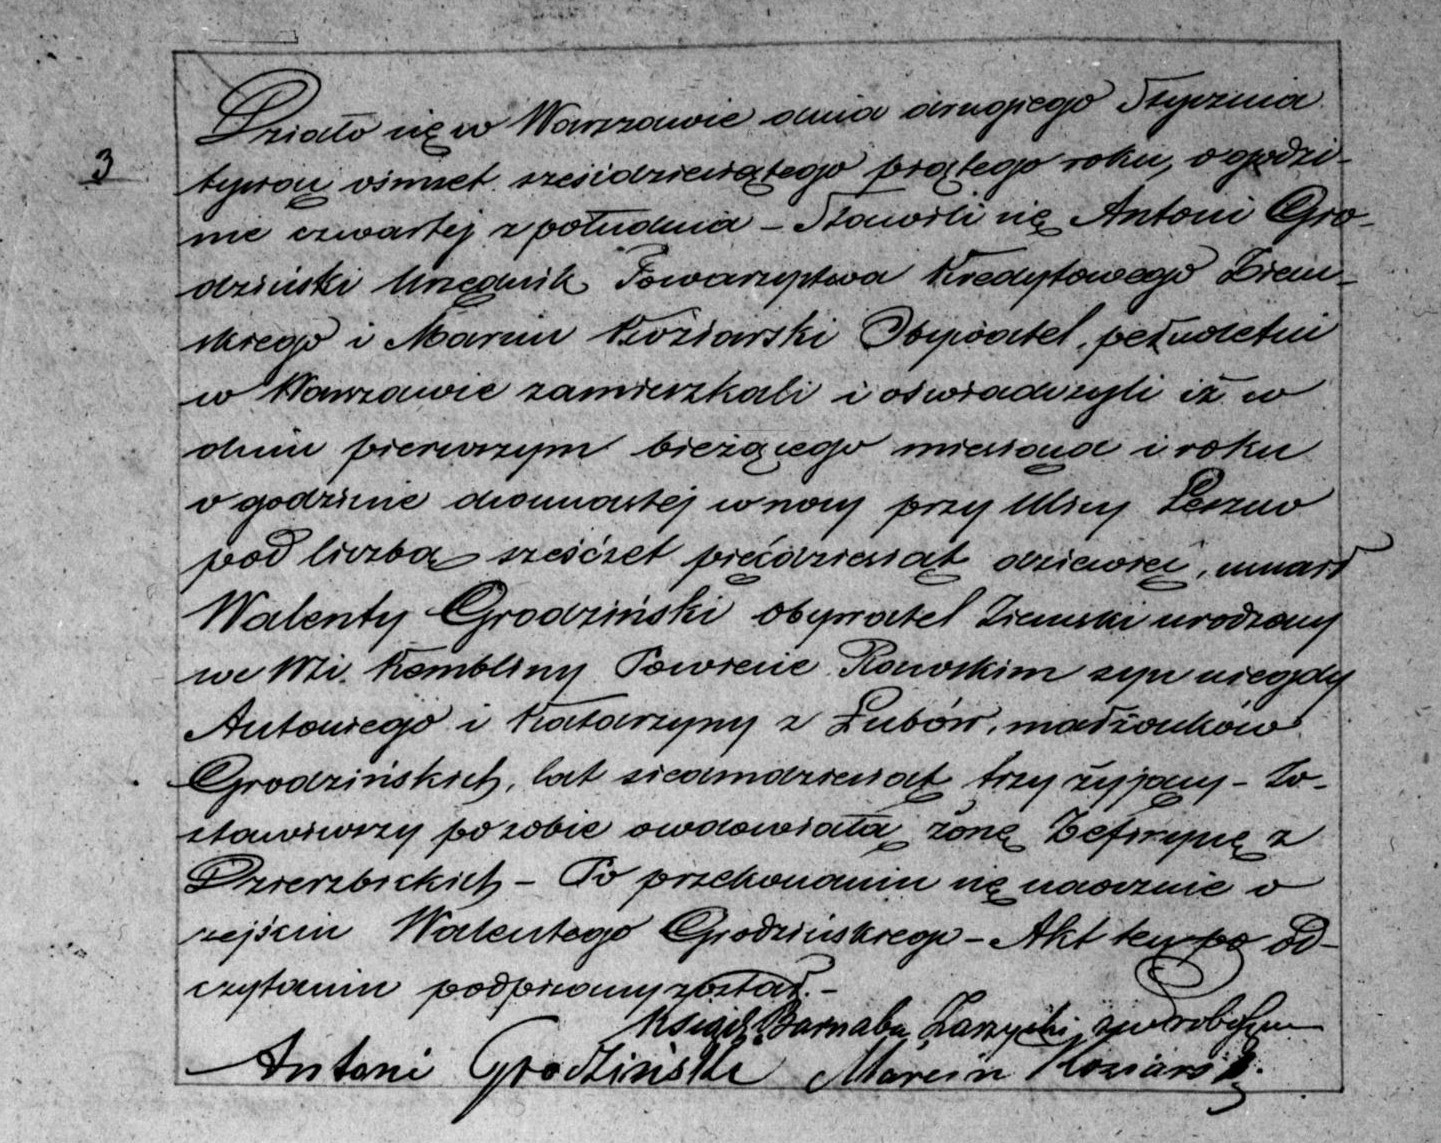 3
Działo się w Warszawie dnia drugiego Stycznia
tysiąc ośmset sześćdziesiątego piątego roku, o godzi-
nie czwartej z południa – Stawili się Antoni Gro-
dziński Urzędnik Towarzystwa Kredytowego Ziem-
skiego i Marcin Koziarski Obywatel, pełnoletni
w Warszawie zamieszkali i oświadczyli iż w
dniu pierwszym bieżącego miesiąca i roku
o godzinie dwunastej w nocy przy Ulicy Leszno
pod liczbą sześćset pięćdziesiąt dziewięć, umarł
Walenty Grodziński Obywatel Ziemski urodzony
we Wsi Kombliny Powiecie Rawskim syn niegdy
Antoniego i Katarzyny z Łubów, małżonków
Grodzińskich, lat siedmdziesiąt trzy żyjący – Zo-
stawiwszy po sobie owdowiałą żonę Zefirynę z
Dzierzbickich – Po przekonaniu się naocznie o
zejściu Walentego Grodzińskiego – Akt ten po od-
czytaniu podpisany został. –
Ksiądz Barnaba Zarzycki
Antoni Grodziński Marcin Koziarski